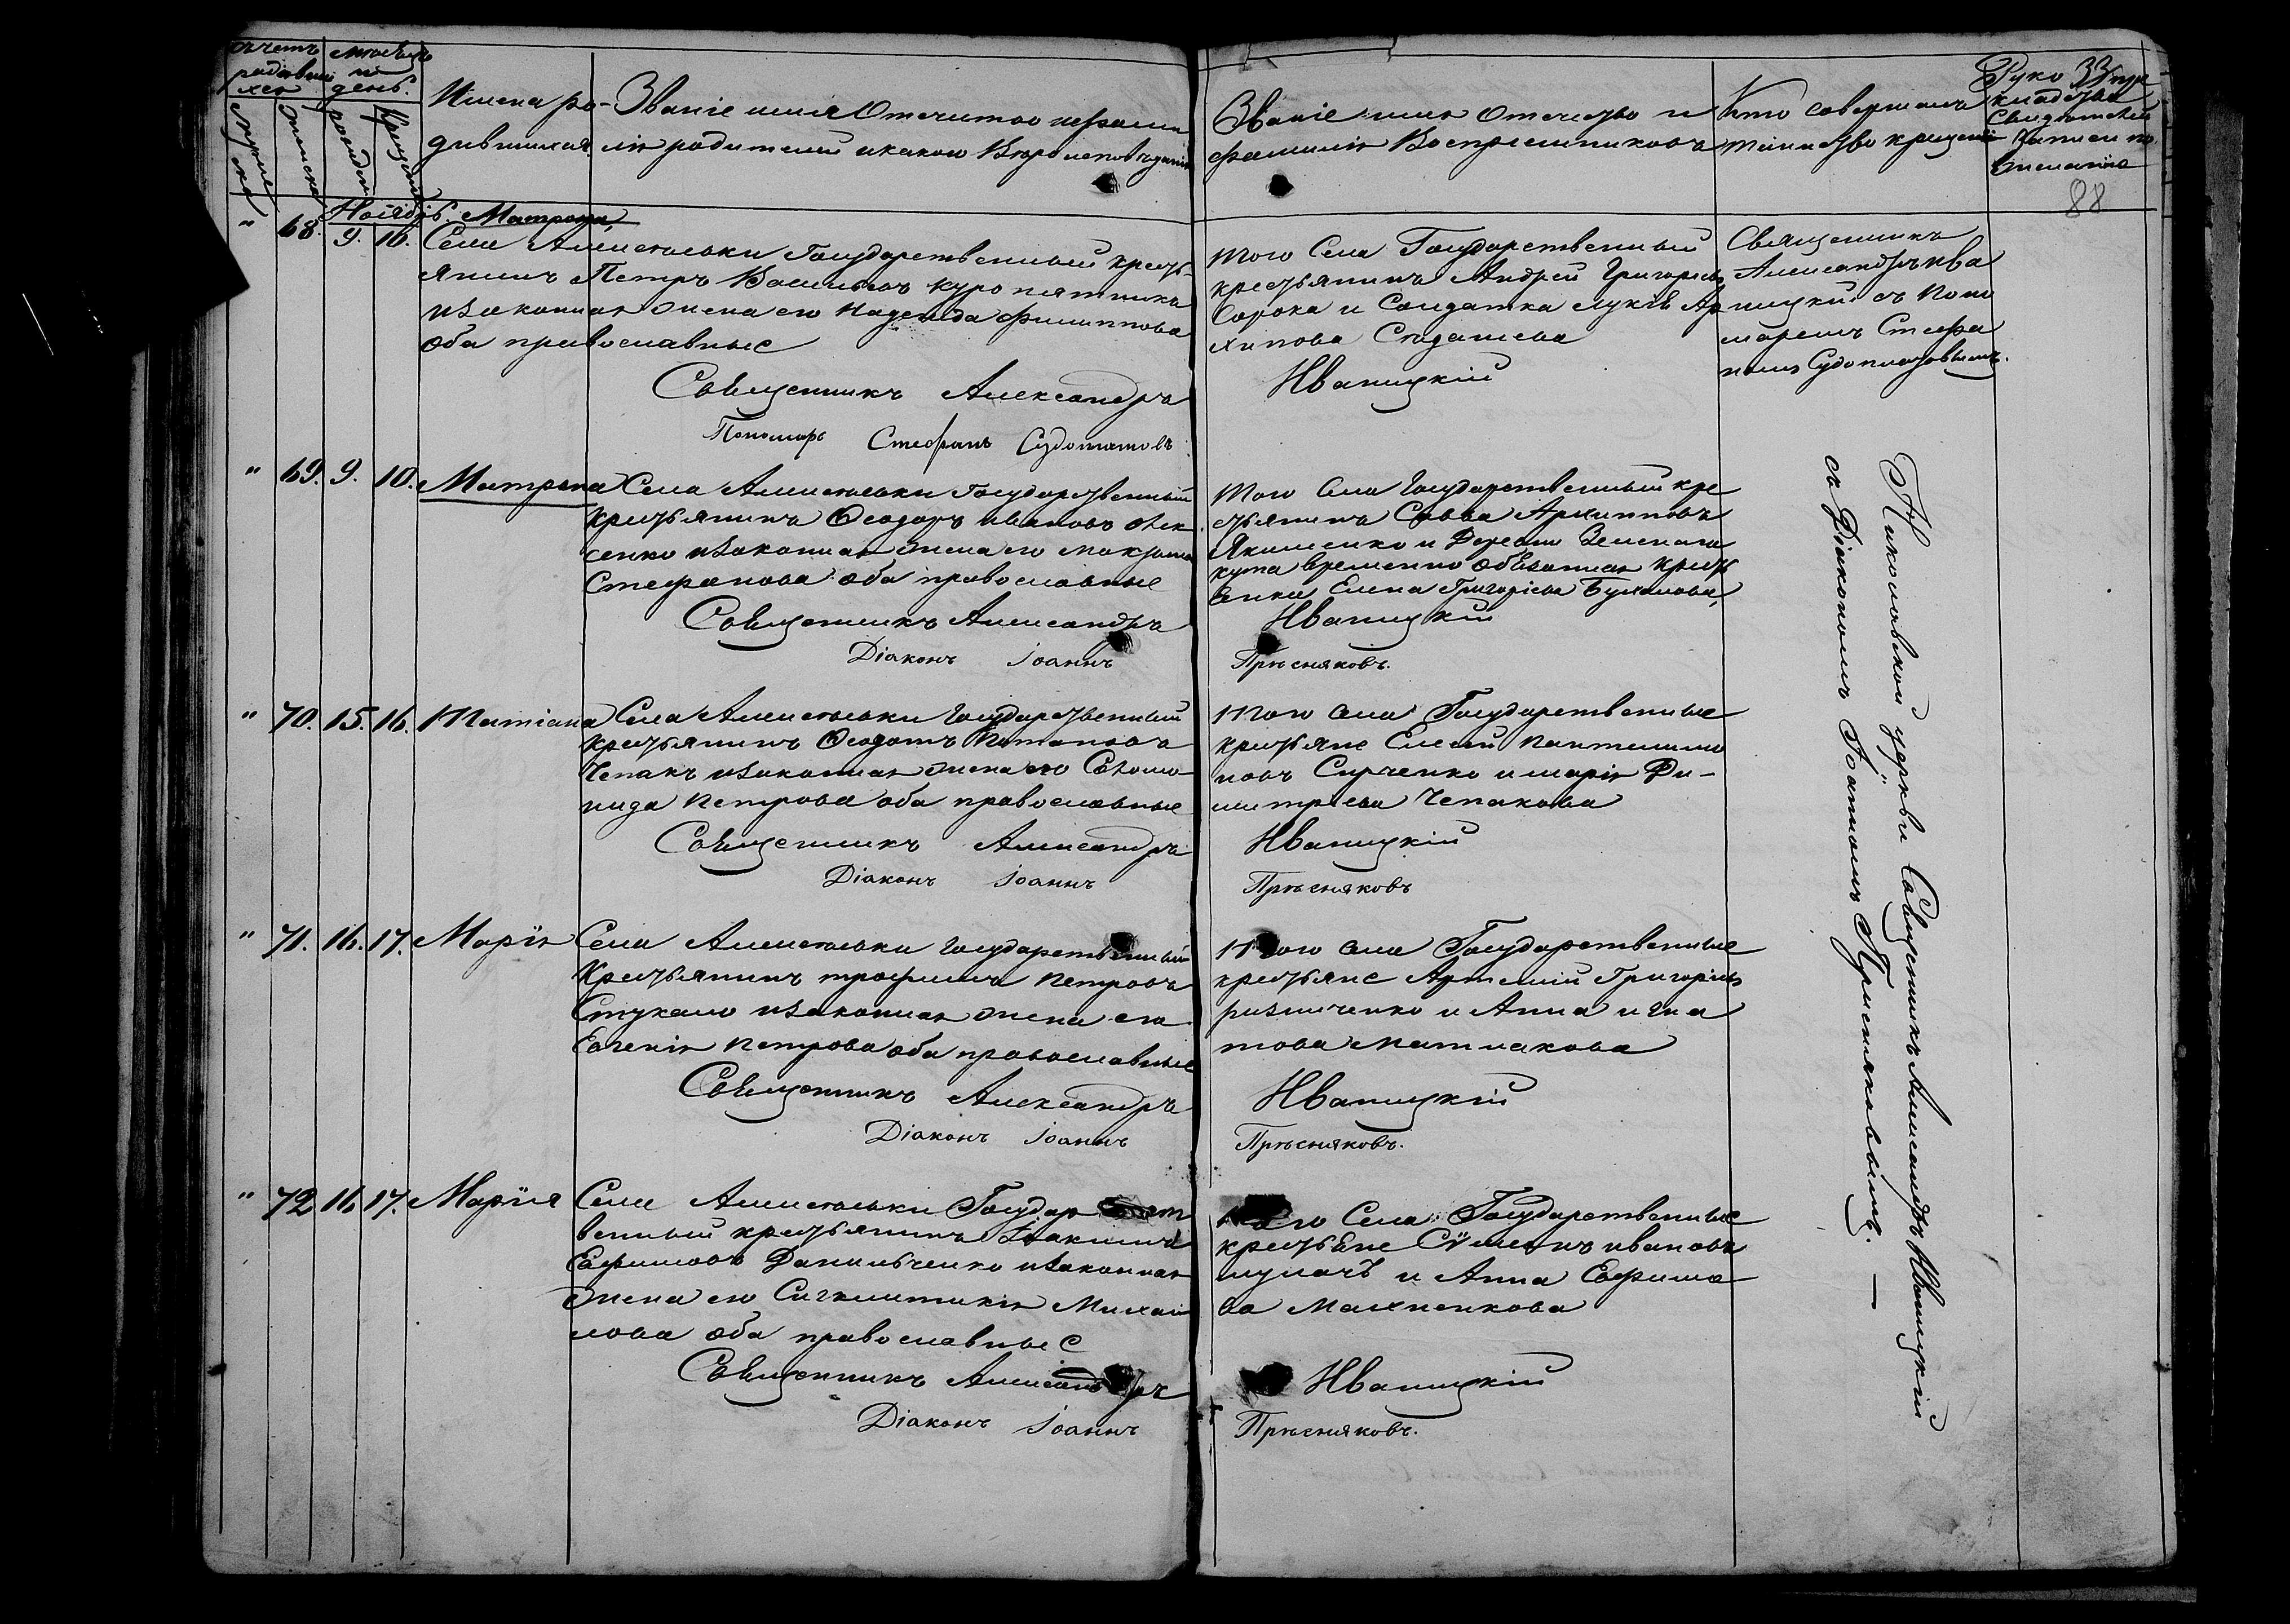 Счетъ
родивших
ся
Мѣсяцъ
и
день.
Мужеска
Женска
рожденія
Крещенія
Имена ро-
дившихся.
Званіе имя Отечество и фами
лія родителей и какого Вѣроисповѣданія
Званіе имя Отечество и
фамилія Воспріемниковъ
Кто совершалъ
таинство крещенія
Руко прі
кладство
Свидѣтелей
записи по
желанію
33
88
Ноябрь. Матрона,
" 68. 9. 10. Села Алексѣевки Государственный кресть-
янинъ Петръ Васильевъ Куропятникъ
и законная жена его Надежда Филиппова
оба православные
Священникъ Александръ
Пономарь Стефанъ Судоплатовъ
того Села Государственный
крестьянинъ Андрей Григорьевъ
Сорока и Солдатка Лукія Ар
хипова
Иваницкій
Священникъ
Александръ Ива
ницкій съ Поно
маремъ Стефа
номъ Судоплатовымъ.
" 69. 9. 10. Матрона Села Алексѣевки Государственный
крестьянинъ Ѳеодоръ Ивановъ Овсѣ
сенко и законная жена его
Стефанова оба православные
Священникъ Александръ
Діаконъ Іоаннъ
того Села Государственный кре
стьянинъ Савва Архиповъ
Якименко и Деревни Зеленаго
кута временно обязанная крестья
нка Елена Григорьева
Иваницкій
Прѣсняковъ.
" 70. 15. 16. Татіана Села Алексѣевки Государственный
крестьянинъ Ѳеодотъ Потаповъ
Чепакъ и законная жена его Соломо-
нида Петрова оба православные
Священникъ Александръ
Діаконъ Іоаннъ
того Села Государственные
крестьяне Елисей Пантелимо
новъ Сырченко и Марія Ди-
митріева Чепакова
Иваницкій
Прѣсняковъ
" 71. 16. 17. Марія Села Алексѣевки Государственный
Крестьянинъ Трофимъ Петровъ
Стукало и законная жена его
Евгенія Петрова оба православные
Священникъ Александръ
Діаконъ Іоаннъ
того Села Государственные
крестьяне Артемій Григорьевъ
Ризниченко и Анна Игна
това
Иваницкій
Прѣсняковъ.
" 72 16 17. Марія Села Алексѣевки Государст
венный крестьянинъ Іоакимъ
Ефимовъ Данильченко и законная
жена его Синклитикія Михай
лова оба православные
Священникъ Александръ
Діаконъ Іоаннъ
того Села Государственные
крестьяне Сѵмеонъ Ивановъ
и Анна Ефимо
ва Махненкова
Иваницкій
Прѣсняковъ.
Николаевской церкви Священникъ Александръ Иваницкій
съ Діакономъ Іоанномъ Прѣсняковымъ. —